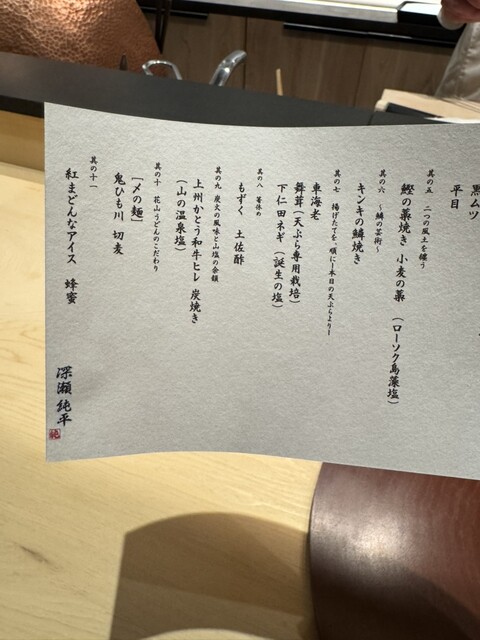 黒ムツ
平目
其の五 二つの風土を纏う
鰹の藁焼き 小麦の藁 (ローソク島藻塩)
其の六 ～鱗の芸術～
キンキの鱗焼き
其の七 揚げたてを、順に―本日の天ぷらより―
車海老
舞茸(天ぷら専用栽培)
下仁田ネギ (誕生の塩)
其の八 箸休め
もずく 土佐酢
其の九 炭火の風味と山塩の余韻
上州かとう和牛ヒレ 炭焼き
(山の温泉塩)
其の十 花山うどんのこだわり
[〆の麺]
鬼ひも川 切麦
其の十一
紅まどんなアイス 蜂蜜
深瀬 純平
純